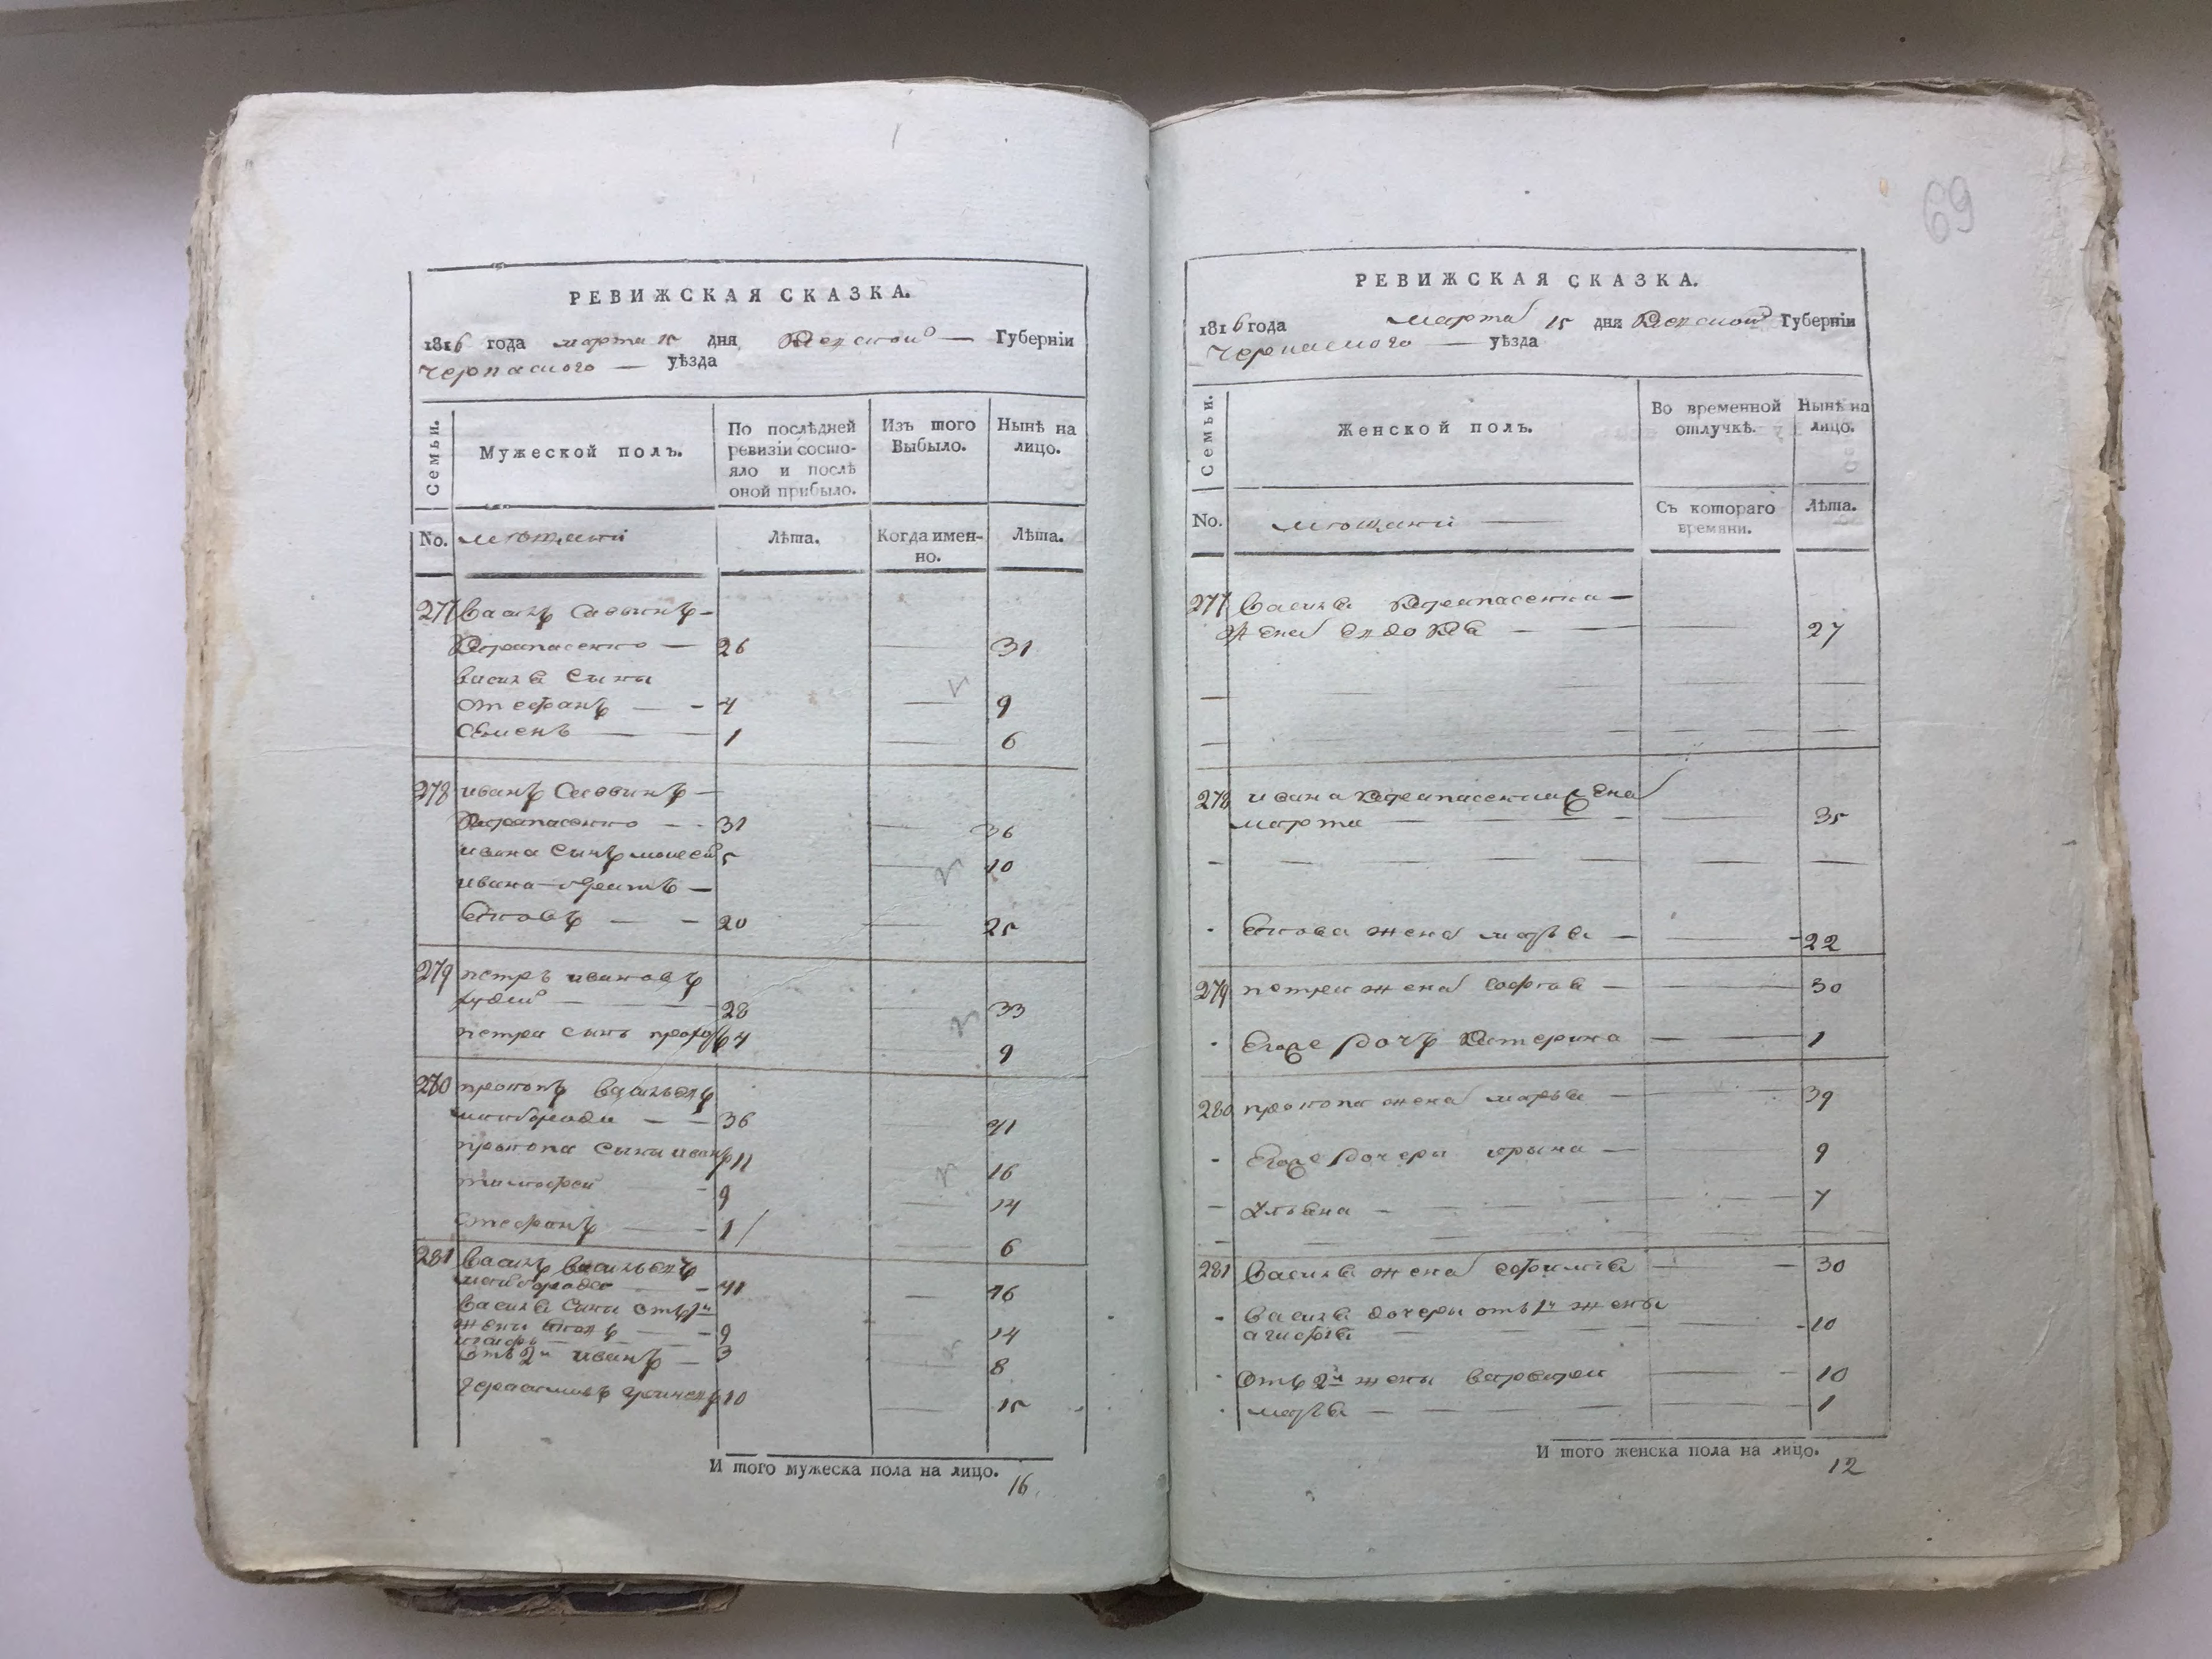 РЕВИЖСКАЯ СКАЗКА.
1816 года марта 15 дня Киевской Губернїи
Черкаского уѣзда
Семьи.
Мужеской полъ.
По послѣдней ревизїи состо-
яло и послѣ
оной прибыло.
Изъ того
Выбыло.
Нынѣ на
лицо.
No. мещани
Лѣта.
Когда имен-
но.
Лѣта.
277 василь савинъ
26 31
василя сыны
стефанъ 4 9
семенъ 1 6
278 иванъ савинъ
31 36
ивана сынъ моисей 5 10
ивана братъ
яковъ 20 25
279 петръ ивановъ
28 33
петра сынъ 4 9
280 прокопъ васильевъ
36 41
прокопа сыны иванъ 11 16
тимофей 9 14
стефанъ 1 6
281 василь васильевъ
41 46
василя сыны отъ 1й
жены 9 14
отъ 2й иванъ 3 8
10 15
И того мужеска пола на лицо.
16
69
РЕВИЖСКАЯ СКАЗКА.
1816 года марта 15 дня Киевской Губернїи
Черкаского уѣзда
Семьи.
Женской полъ.
Во временной
отлучкѣ.
Нынѣ на
лицо.
No. мещани
Съ котораго
времяни.
Лѣта.
277 василя
жена 27
278 ивана жена
марта 35
якова жена марья 22
279 петра жена софия 30
его дочь катерина 1
280 прокопа жена марья 39
его дочери орына 9
ульяна 7
281 василя жена ефимия 30
василя дочери отъ 1й жены
агафия 10
отъ 2й жены варвара 10
марья 1
И того женска пола на лицо.
12